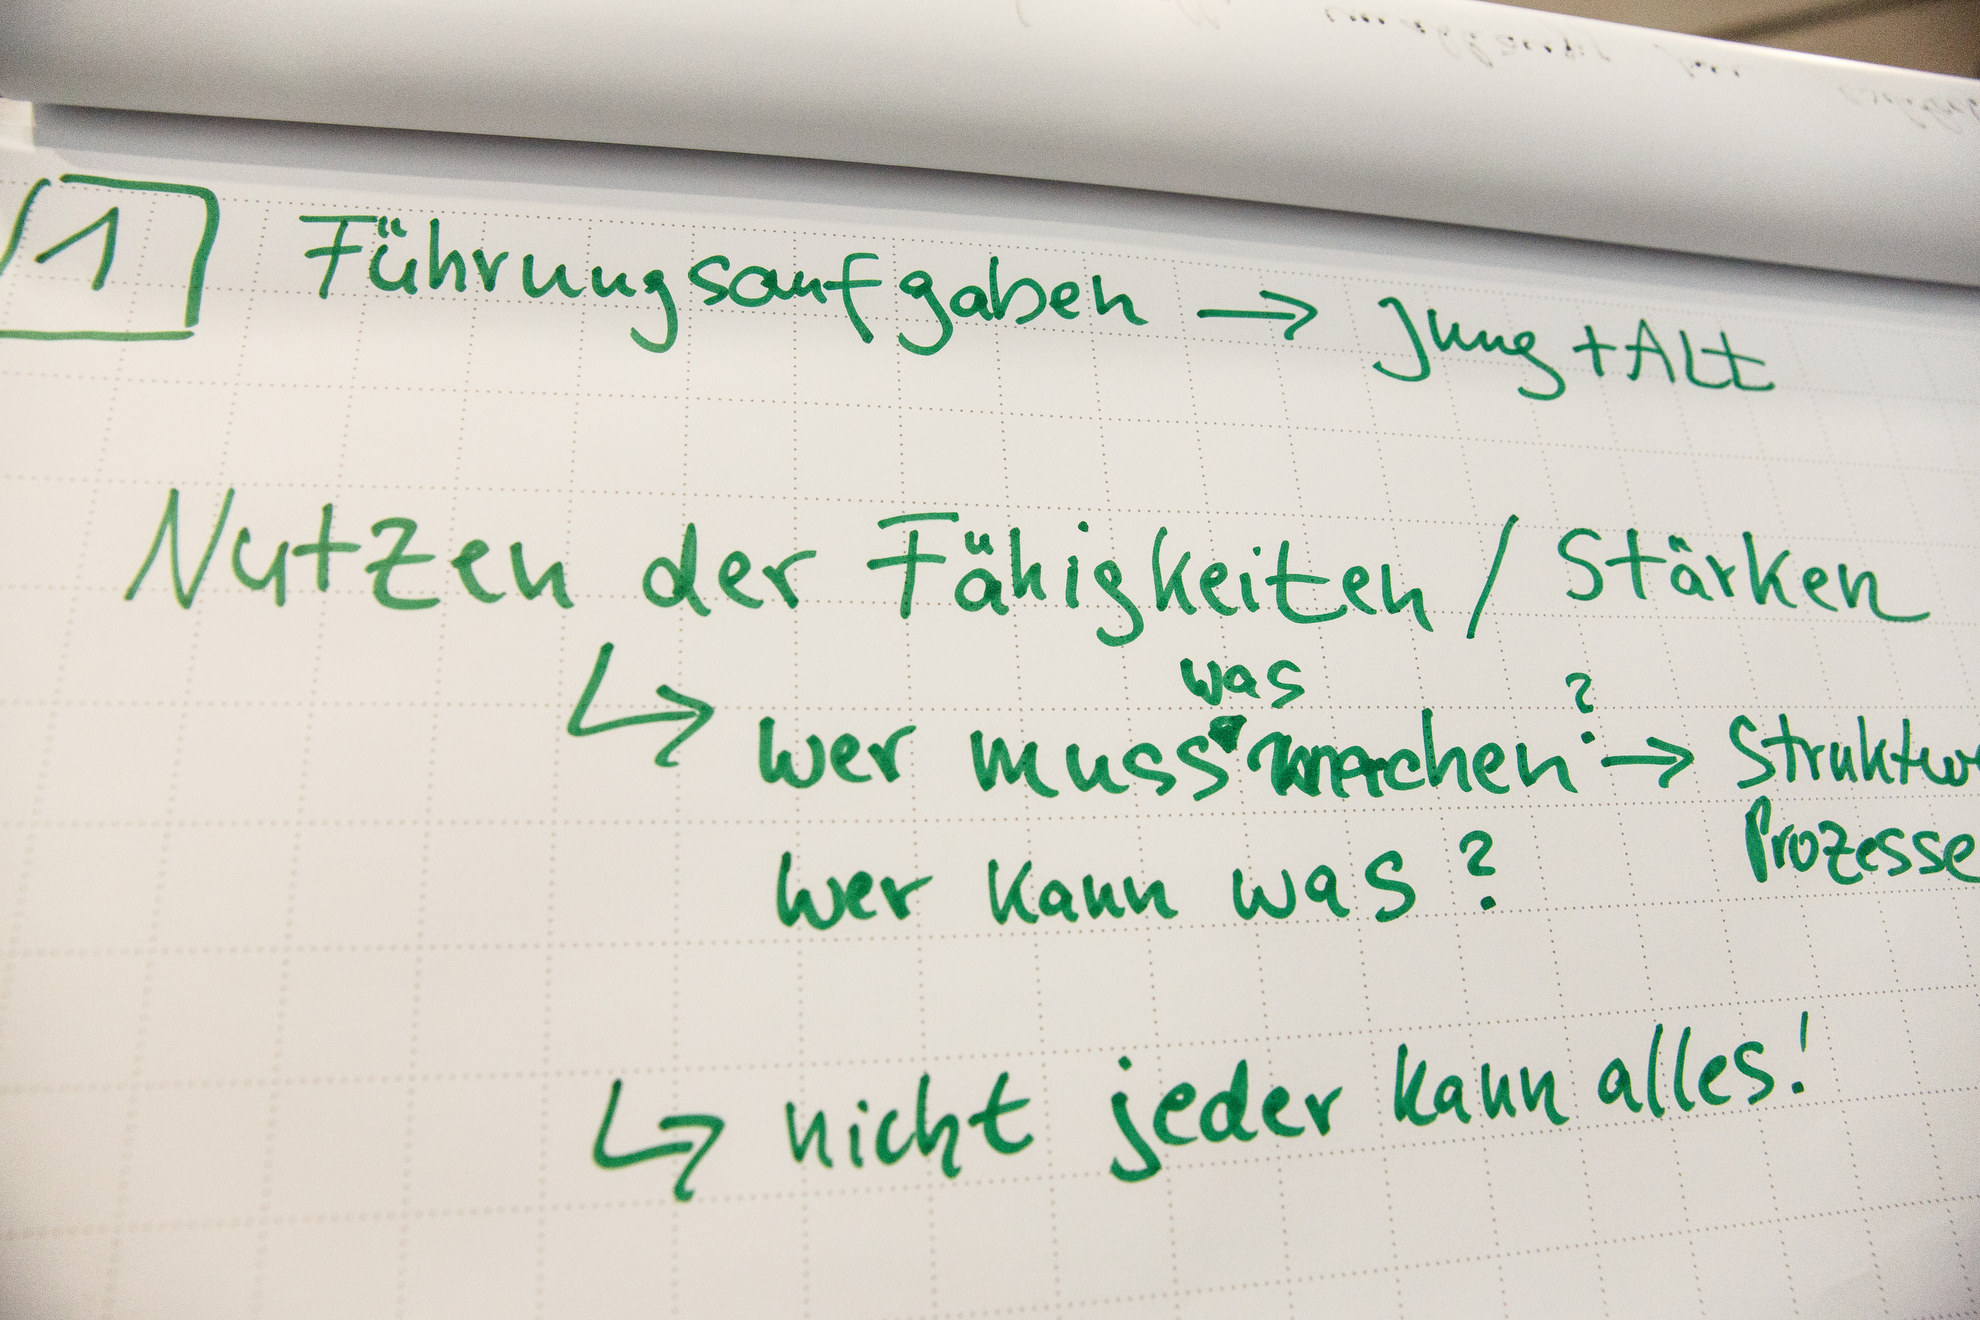 1 Führungsaufgaben → Jung + Alt
Nutzen der Fähigkeiten / Stärken
↳ wer muss was machen? → Struktur
Prozesse
wer kann was?
↳ nicht jeder kann alles!